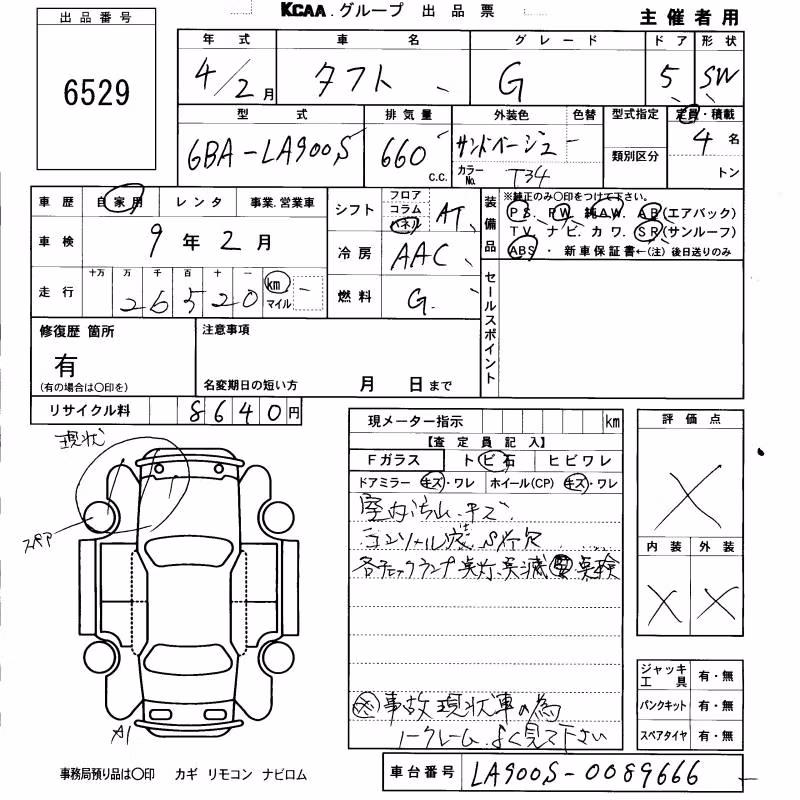 KCAA.グループ 出品票
主催者用
出品番号
6529
年式 車名 グレード ドア 形状
4/2月 タフト G 5 SW
型式 排気量 外装色 色替 型式指定 定員・積載
6BA-LA900S 660 c.c. サンドベージュ - 類別区分 4名
カラーNo. T34 トン
車歴 自家用 レンタ 事業.営業車
車検 9年2月
走行 十万 万 千 百 十 一
26520 km マイル -
シフト フロア コラム パネル AT
冷房 AAC
燃料 G.
装備品 ※純正のみ〇印をつけて下さい。
PS. PW. 純AW. AB(エアバック)
TV. ナビ. カワ. SR(サンルーフ)
ABS・新車保証書←(注)後日送りのみ
セールスポイント
修復歴 箇所
有
(有の場合は〇印を)
注意事項
名変期日の短い方 月 日まで
リサイクル料 8640円
現状
スペア
A1
現メーター指示 km
【査定員記入】
Fガラス トビ石 ヒビワレ
ドアミラー キズ・ワレ ホイール(CP) キズ・ワレ
室内汚れ.キズ
コンソール S欠
各チェックランプ点灯.点滅 要 点検
事故現状車の為
ノークレーム.よく見て下さい
評価点
X
内装 外装
X X
ジャッキ工具 有・無
パンクキット 有・無
スペアタイヤ 有・無
事務局預り品は〇印 カギ リモコン ナビロム
車台番号 LA900S-0089666